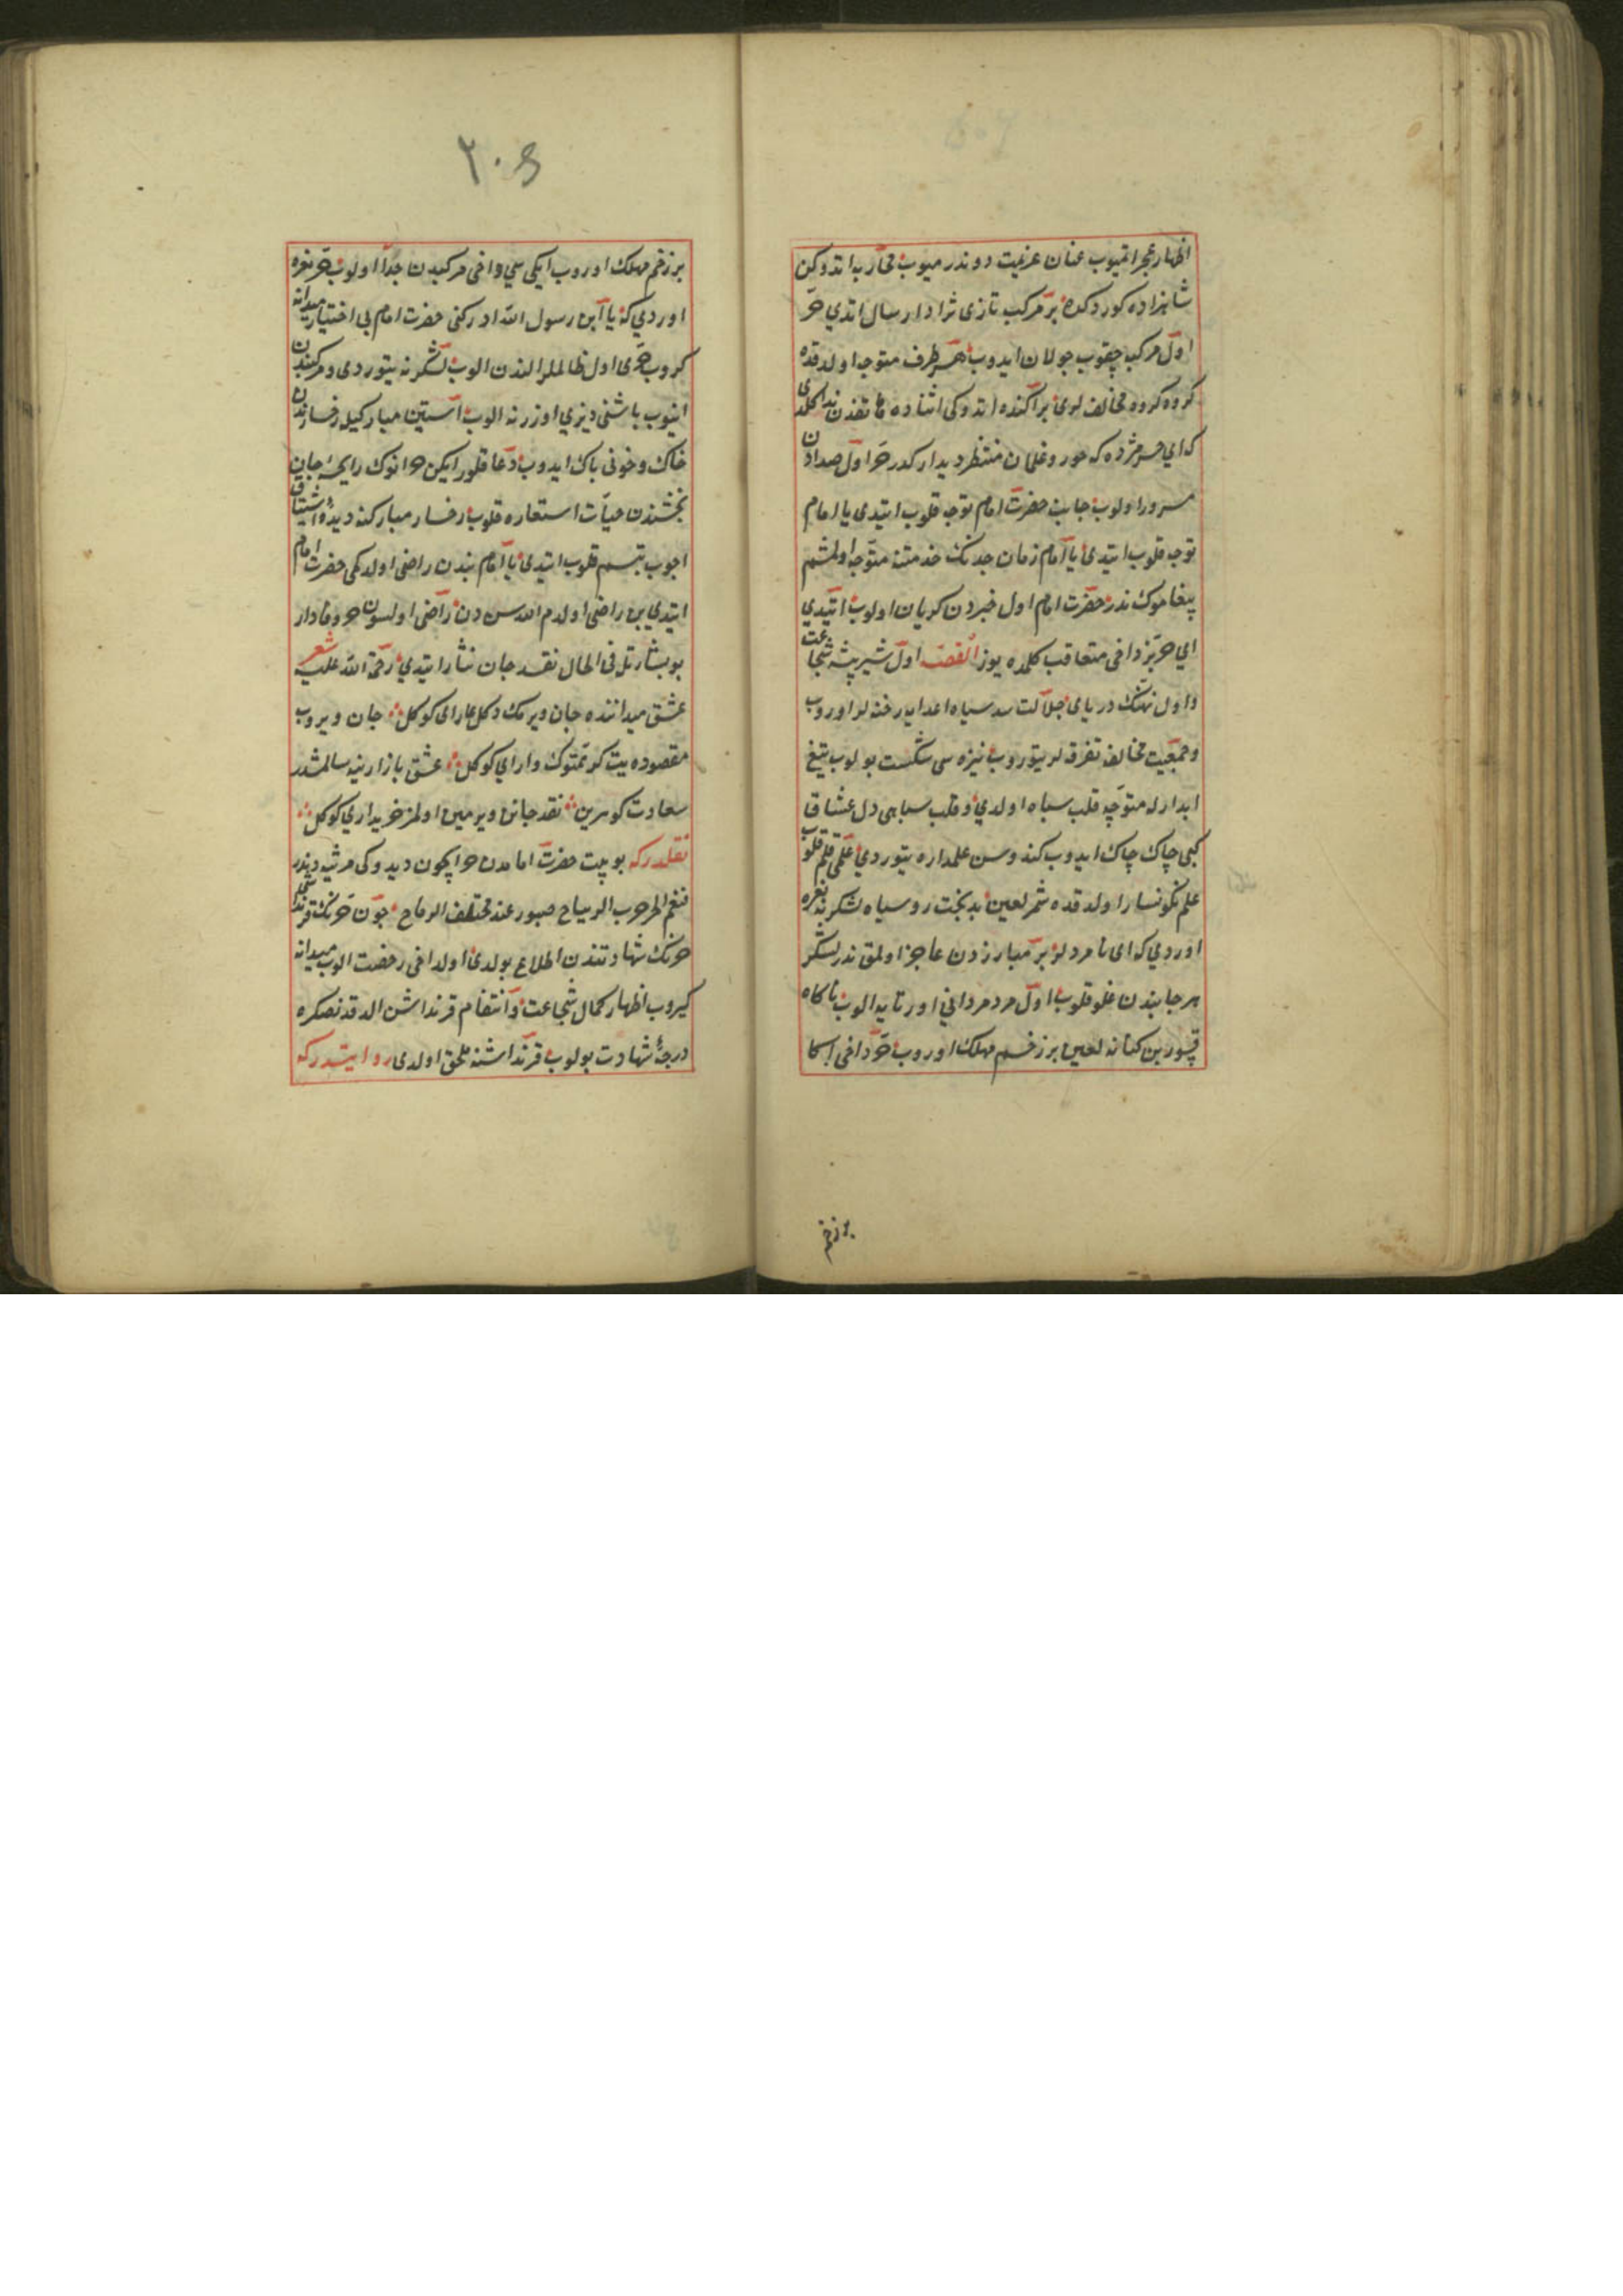 اظهار عجز اتمیوب عنان عزیمت دوندرمیوب محاربه اتدوکن
شاهزاده کوردکده بر مرکب تازی نژاد ارسال اتدی حر
اول مرکبه چقوب جولان ایدوب هر طرف متوجه اولدقده
کروه کروه مخالف لری براکنده اتدوکی اثناده هاتفدن ندا کلدی
که ای حر مژده که حور و غلمان منتظر دیدارکدر حر اول صدادن
مسرور اولوب جانب حضرت امام توجه قلوب ایتدی یا امام
توجه قلوب ایتدی یا امام زمان جدنک خدمتنه متوجه اولمشم
پیغاموک ندر حضرت امام اول خبردن کریان اولوب ایتدی
ای حر بز داخی متعاقب کلمده یوز القصه اول شیر بیشه شجاعت
و اول نهنک دریای جلالت سد سپاه اعدایه رخنه لر اوروب
و جمعیت مخالفه تفرقه لر یتوروب نیزه سی شکست بولوب تیغ
ابدارله متوجه قلب سپاه اولدی و قلب سپاهی دل عشاق
کبی چاک چاک ایدوب کندوسن علمداره یتوردی علمی قلم قلوب
علم نکونسار اولدقده شمر لعین بدبخت روسیاه لشکرنه نعره
اوردی که ای نامردلر بر مبارزدن عاجز اولمق ندر لشکر
هر جانبدن غلو قلوب اول مرد مردانی اورتایه الوب ناکاه
قسور بن کنانه لعین بر زخم مهلک اوروب حر داخی اکا
بر زخم
۲۰۵
بر زخم مهلک اوروب ایکی سی داخی مرکبدن جدا اولوب حر نعره
اوردی که یا ابن رسول الله ادرکنی حضرت امام بی اختیار میدانه
کروب حری اول ظالملر الندن الوب لشکرنه یتوردی و مرکبندن
اینوب باشنی دیزی اوزرنه الوب آستین مبارکیله رخسارندن
خاک و خونی پاک ایدوب دعا قلور ایکن حر انوک رایحه جان
بخشندن حیات استعاره قلوب رخسار مبارکنه دیده اشتیاق
اچوب تبسم قلوب ایتدی یا امام بندن راضی اولدکمی حضرت امام
ایتدی بن راضی اولدم الله سندن راضی اولسون حر وفادار
بو بشارتله فی الحال نقد جان نثار ایتدی رحمة الله علیه شعر
عشق میداننده جان ویرمک دکل عار ای کوکل جان ویروب
مقصوده یت کر همتوک وار ای کوکل عشق بازارینه سالمشدر
سعادت کوهرین نقد جانن ویرمین اولمز خریدار ای کوکل
نقلدر که بو بیت حضرت امامدن حر ایچون دیدوکی مرثیه دندر
فنعم الحر حر بن الریاح صبور عند مختلف الرماح چون حرنک قرنداشی
حرنک شهادتندن اطلاع بولدی اولداخی رخصت الوب میدانه
کیروب اظهار کمال شجاعت و انتقام قرنداشن الدقدنصکره
درجه شهادت بولوب قرنداشنه ملحق اولدی روایتدر که